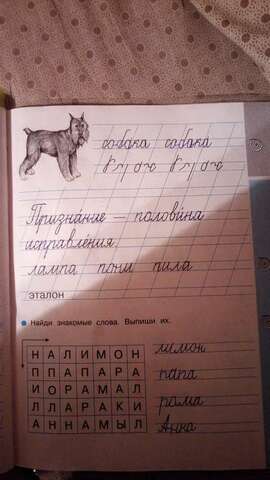 собака собака
Призна́ние — полови́на
исправле́ния.
лампа пони пила
эталон
Найди знакомые слова. Выпиши их.
Н А Л И М О Н лимон
П П А П А Р А папа
И О Р А М А Л
Л Л А Р А К И рама
А Н Н А М Ы Л Анна